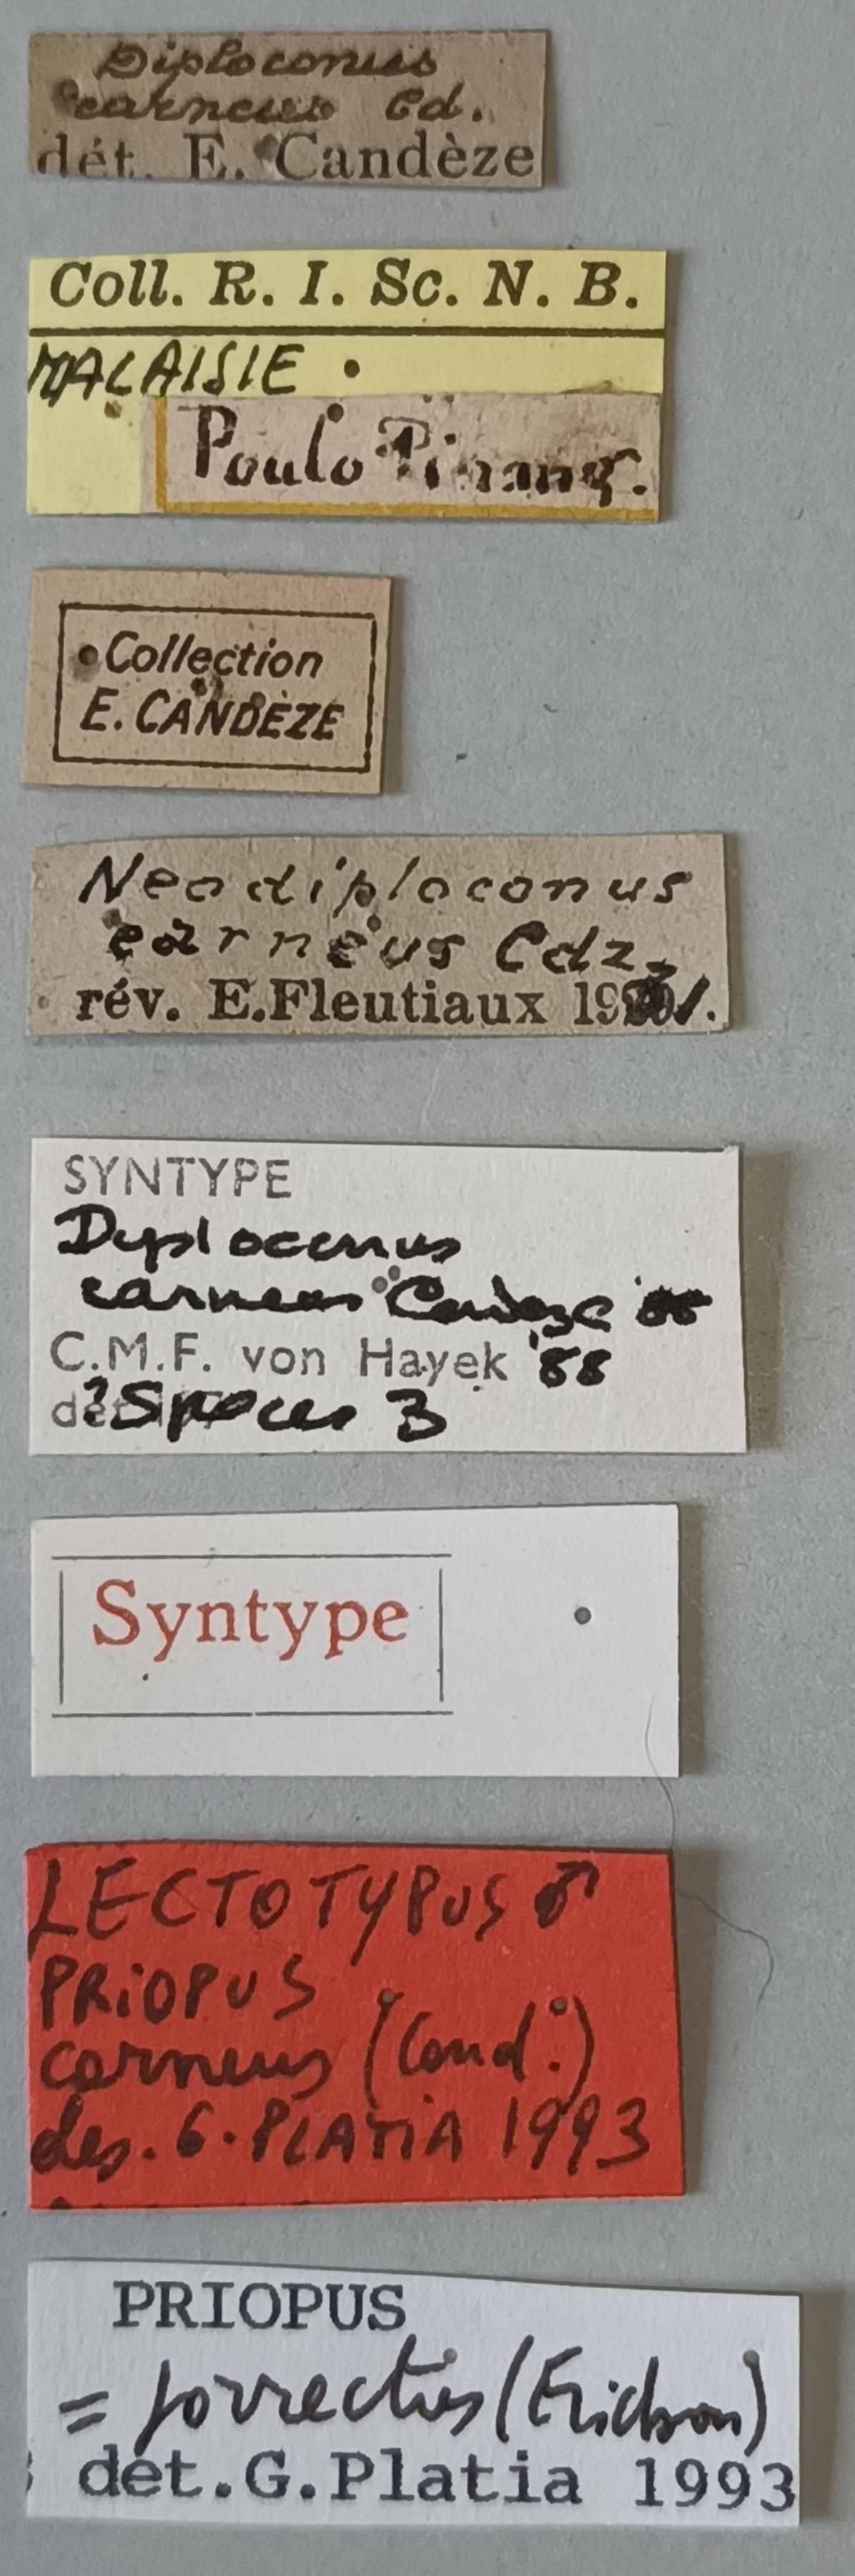 Diploconus
carneus Cd.
dét. E. Candèze
Coll. R. I. Sc. N. B.
MALAISIE
Poulo Pinang.
Collection
E. CANDÈZE
Neodiploconus
carneus Cdz.
rév. E.Fleutiaux 19
SYNTYPE
Dyploconus
carneus Candeze
C.M.F. von Hayek '88
det
Species 3
Syntype
LECTOTYPUS ♂
PRIOPUS
carneus (Cand.)
des. G. PLATIA 1993
PRIOPUS
= porrectus (Erichson)
det.G.Platia 1993